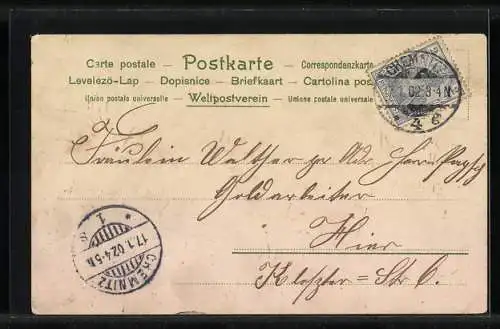 Carte postale — Postkarte — Correspondenzkarte
Levelező-Lap — Dopisnice — Briefkaart — Cartolina pos
Union postale universelle — Weltpostverein — Unione postale universale
CHEMNITZ
1 02 3-4 N
Fräulein Walther zu Adr Herrn
Goldarbeiter
Hier
Kloster-Str 6.
1
17.1.02 4-5 N
CHEMNITZ